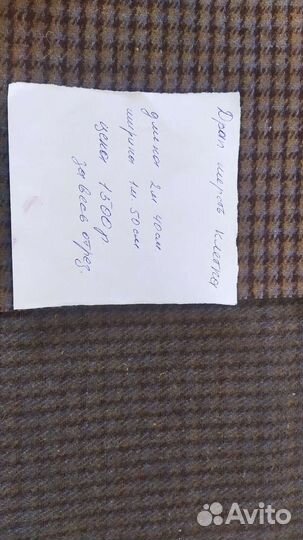 Драп шерсть клетка
длина 2м 40см
ширина 1м 50см
цена 1500р.
за весь отрез.
Avito